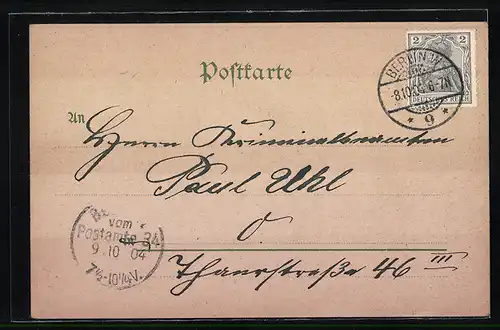 2 2
DEUTSCHES REICH
BERLIN W
8.10.04. 6-7N
* 9 *
Postkarte
An
Herrn Kriminalbeamten
Paul Uhl
O
vom
Postamte 34
9.10 04
7½-10¼V.
Thaerstraße 46 III